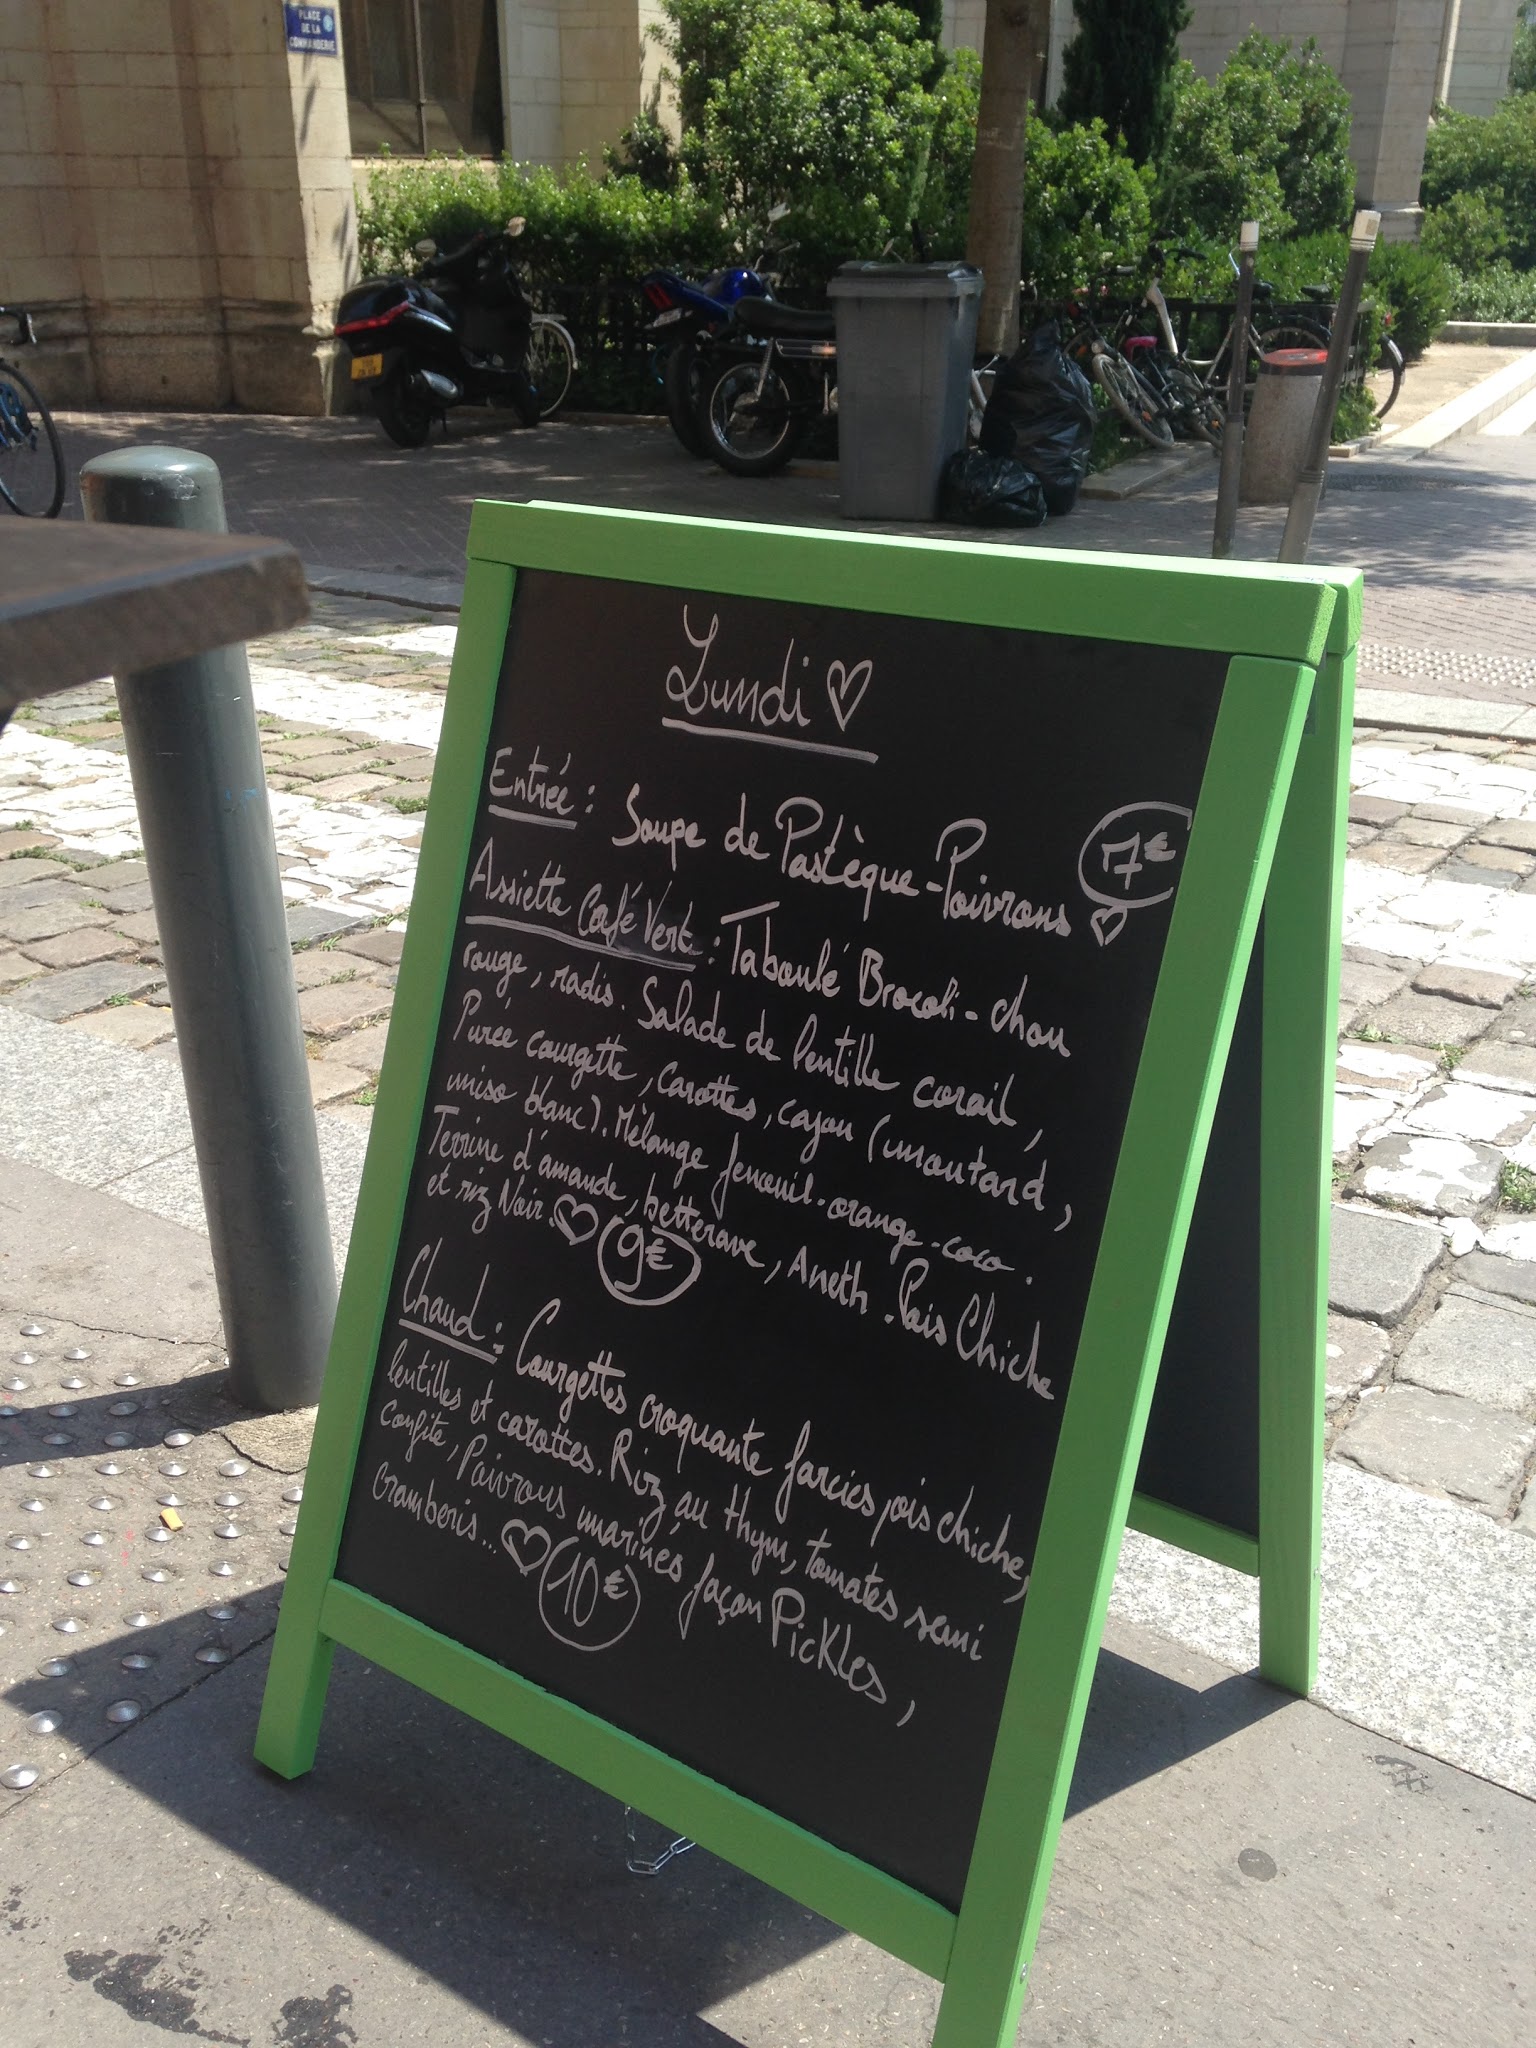 PLACE
DE LA
COMMANDERIE
Lundi ♡
Entrée : Soupe de Pastèque-Poivrons ♡ 7€
Assiette Café Vert : Taboulé Brocoli - chou
rouge, radis. Salade de lentille corail,
Purée courgette, carottes, cajou (moutard,
miso blanc). Mélange fenouil-orange-coco.
Terrine d'amande, betterave, Aneth - Pois Chiche
et riz Noir. ♡ 9€
Chaud : Courgettes croquante farcies, pois chiche,
lentilles et carottes. Riz au thym, tomates semi
confite, Poivrons marinés façon Pickles,
cramberis... ♡ 10€